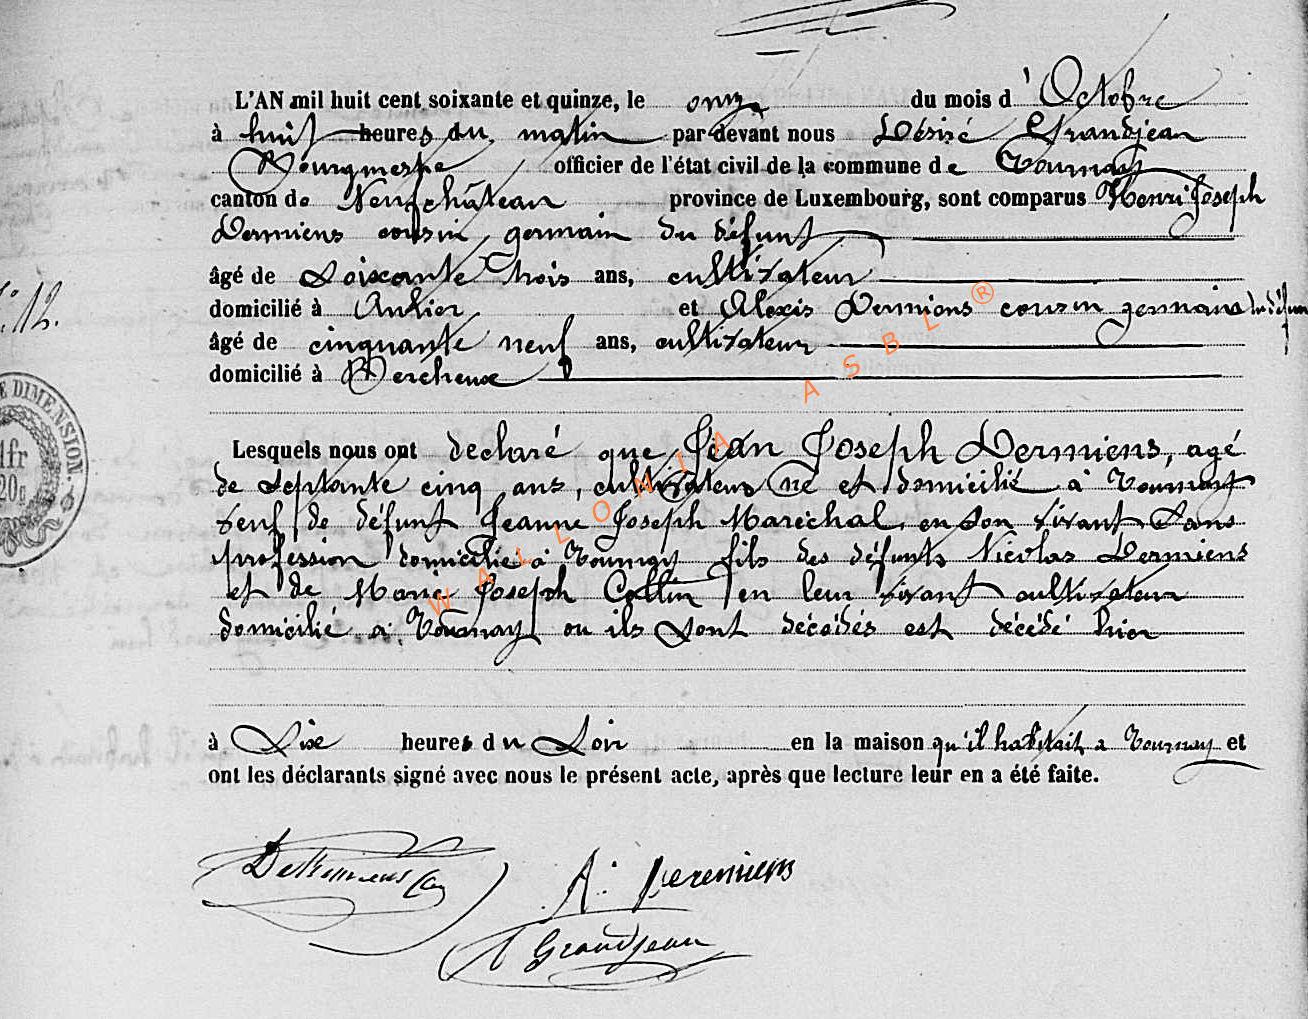 L'AN mil huit cent soixante et quinze, le onze du mois d'Octobre
à huit heures du matin par devant nous Désiré Grandjean
Bourgmestre officier de l'état civil de la commune de Tournay
canton de Neufchâteau province de Luxembourg, sont comparus Henri Joseph
Dermiens cousin germain du défunt
âgé de Soixante trois ans, cultivateur
domicilié à Anlier et Alexis Dermiens cousin germain du défunt
N° 12.
âgé de cinquante neuf ans, cultivateur
domicilié à Bercheux
DE DIMENSION.
1fr
20
Lesquels nous ont declaré que Jean Joseph Dermiens, agé
de Septante cinq ans, cultivateur né et domicilié à Tournay
veuf de défunt Jeanne Joseph Maréchal en son vivant Sans
profession domicilié à Tournay fils des défunts Nicolas Dermiens
et de Marie Joseph Collin en leur vivant cultivateur
domicilié à Tournay ou ils Sont décédés est décédé hier
à Dix heures du Soir en la maison qu'il habitait a Tournay et
ont les déclarants signé avec nous le présent acte, après que lecture leur en a été faite.
A. Deremiens
Grandjean
WALLONIA ASBL ®